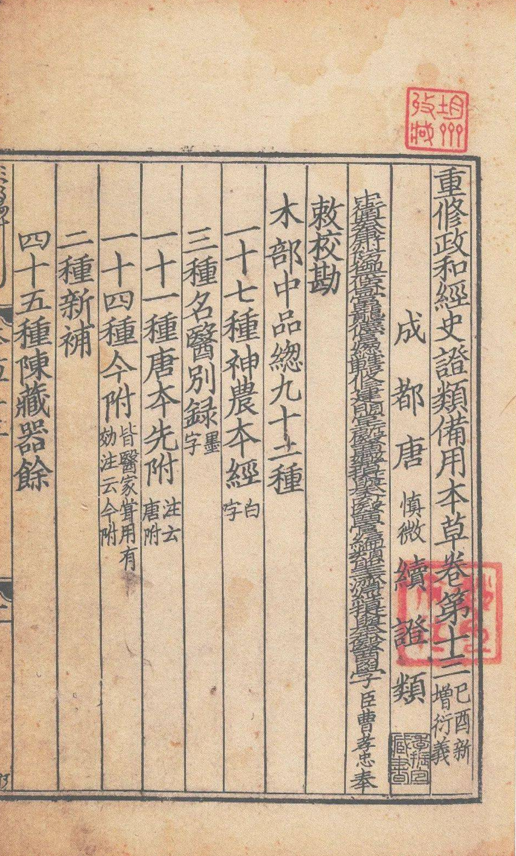 重修政和經史證類備用本草卷第十三 己酉新增衍義
成都唐慎微續證類
編類聖濟經提舉太醫學臣曹孝忠奉
敕校勘
木部中品總九十二種
一十七種神農本經 白字
三種名醫別録 墨字
一十一種唐本先附 注云唐附
一十四種今附 皆醫家嘗用有効注云今附
二種新補
四十五種陳藏器餘